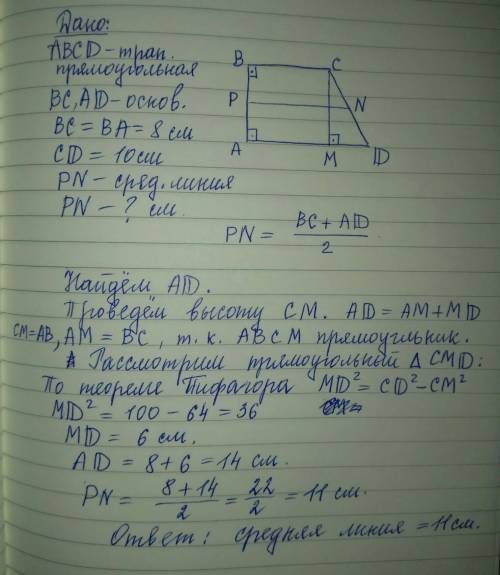 Дано:
ABCD - трап.
прямоугольная
BC, AD - основ.
BC = BA = 8 см
CD = 10 см
PN - сред. линия
PN - ? см.
B
C
P
N
A
M
D
PN = (BC + AD)/2
Найдём AD.
Проведём высоту CM. AD = AM + MD
CM=AB, AM = BC, т.к. ABCM прямоугольник.
Рассмотрим прямоугольный Δ CMD:
По теореме Пифагора MD² = CD² - CM²
MD² = 100 - 64 = 36
MD = 6 см.
AD = 8 + 6 = 14 см.
PN = (8 + 14)/2 = 22/2 = 11 см.
Ответ: средняя линия = 11 см.